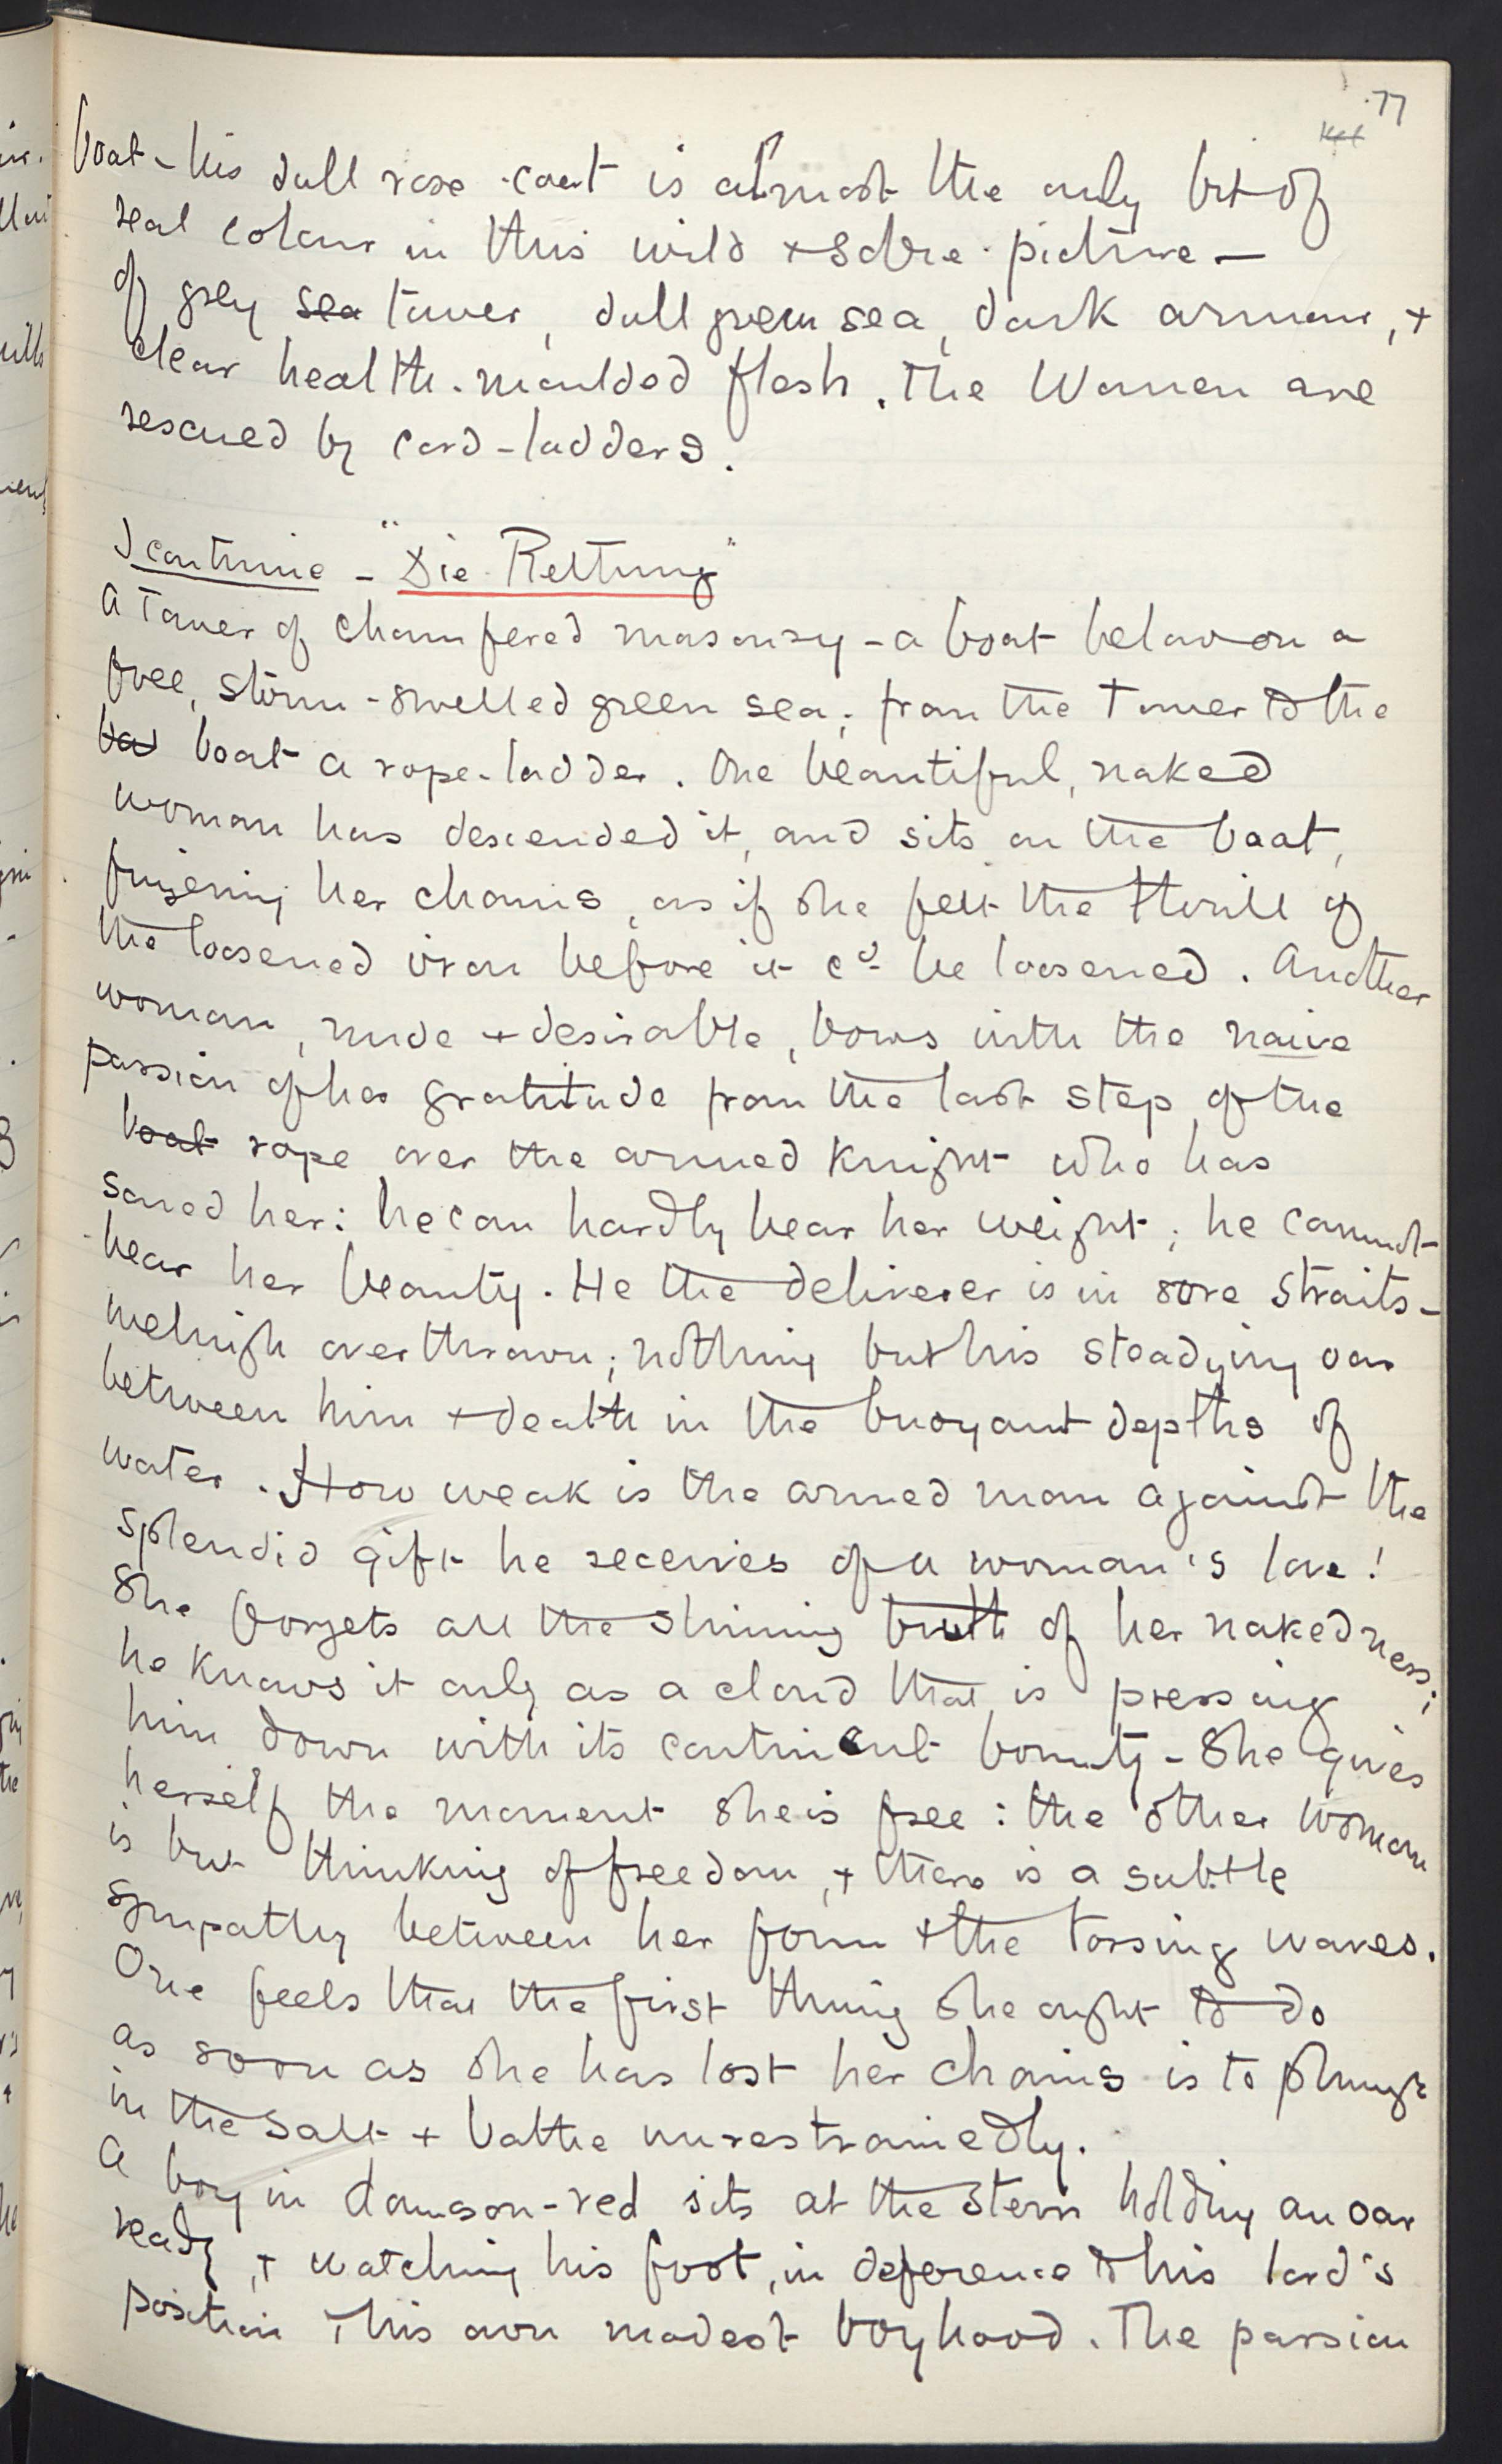 77
boat - his dull rose coat is almost the only bit of
real colour in this wild + sobre picture -
of grey sea tower, dull green sea, dark armour, +
clear health-moulded flesh. The Women are
rescued by cord-ladders.
I continue - "Die Rettung"
A Tower of chamfered masonry - a boat below on a
free, storm-swelled green sea; from the Tower to the
boat a rope-ladder. One beautiful, naked
woman has descended it, and sits on the boat,
fingering her chains, as if she felt the thrill of
the loosened iron before it cd be loosened. Another
woman, nude + desirable, bows with the naive
passion of her gratitude from the last step of the
boat rope over the armed Knight who has
saved her: he can hardly bear her weight; he cannot
bear her beauty. He the deliverer is in sore straits -
welnigh overthrown; nothing but his steadying oar
between him + death in the buoyant depths of
water. How weak is the armed man against the
splendid gift he receives of a woman's love!
She forgets all the shining truth of her nakedness;
he knows it only as a cloud that is pressing
him down with its continent bounty - She gives
herself the moment she is free: the other woman
is but thinking of freedom, + there is a subtle
sympathy between her form + the tossing waves.
One feels that the first thing she ought to do
as soon as she has lost her chains is to plunge
in the salt + battle unrestrainedly.
A boy in damson-red sits at the stern holding an oar
ready, + watching his foot, in deference to his lord's
position + his own modest boyhood. The passion